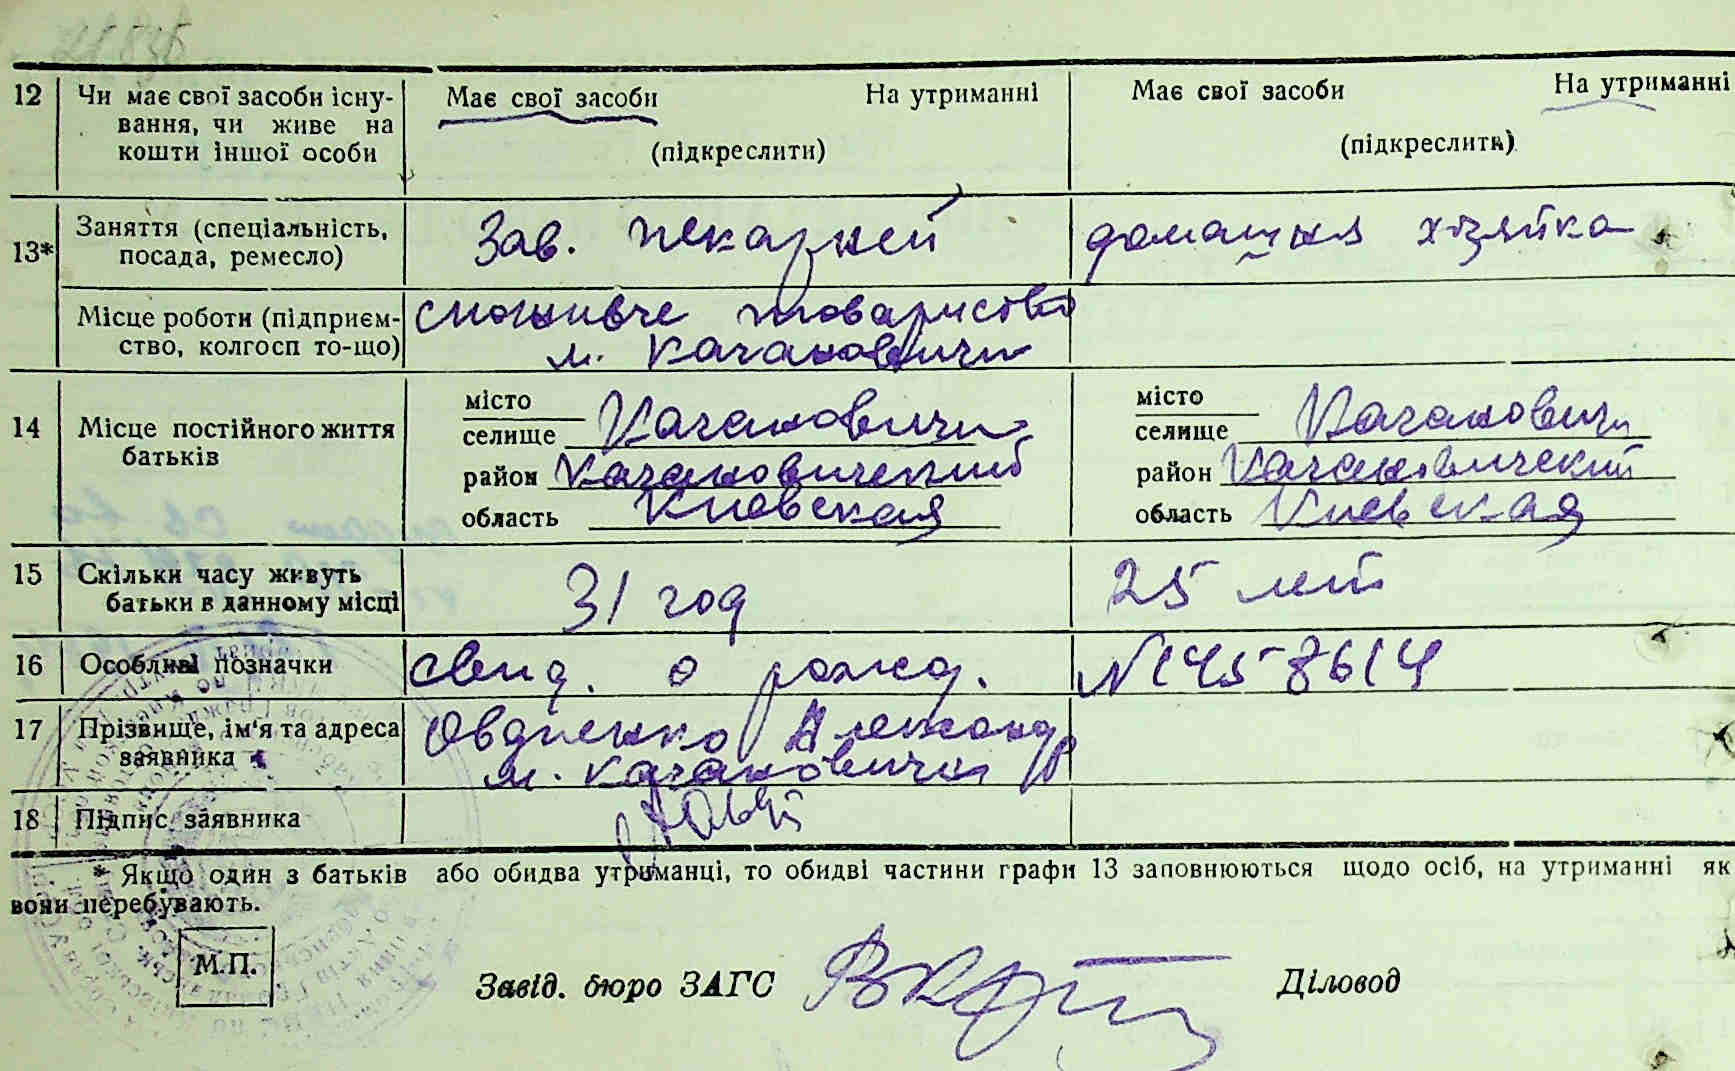 12 Чи має свої засоби існу- Має свої засоби На утриманні Має свої засоби На утриманні
вання, чи живе на
кошти іншої особи (підкреслити) (підкреслити)
13* Заняття (спеціальність, Зав. пекарней домашня хозяйка
посада, ремесло)
Місце роботи (підприєм- споживче товариство
ство, колгосп то-що) м. Кагановичи
14 Місце постійного життя місто Кагановичи місто Кагановичи
батьків селище селище
район Кагановический район Кагановический
область Киевская область Киевская
15 Скільки часу живуть 31 год 25 лет
батьки в данному місці
16 Особливі позначки свид. о рожд. №1458614
17 Прізвище, ім'я та адреса Овдиенко Александр
заявника м. Кагановичи
18 Підпис заявника
* Якщо один з батьків або обидва утриманці, то обидві частини графи 13 заповнюються щодо осіб, на утриманні як
вони перебувають.
М.П.
Завід. бюро ЗАГС Діловод